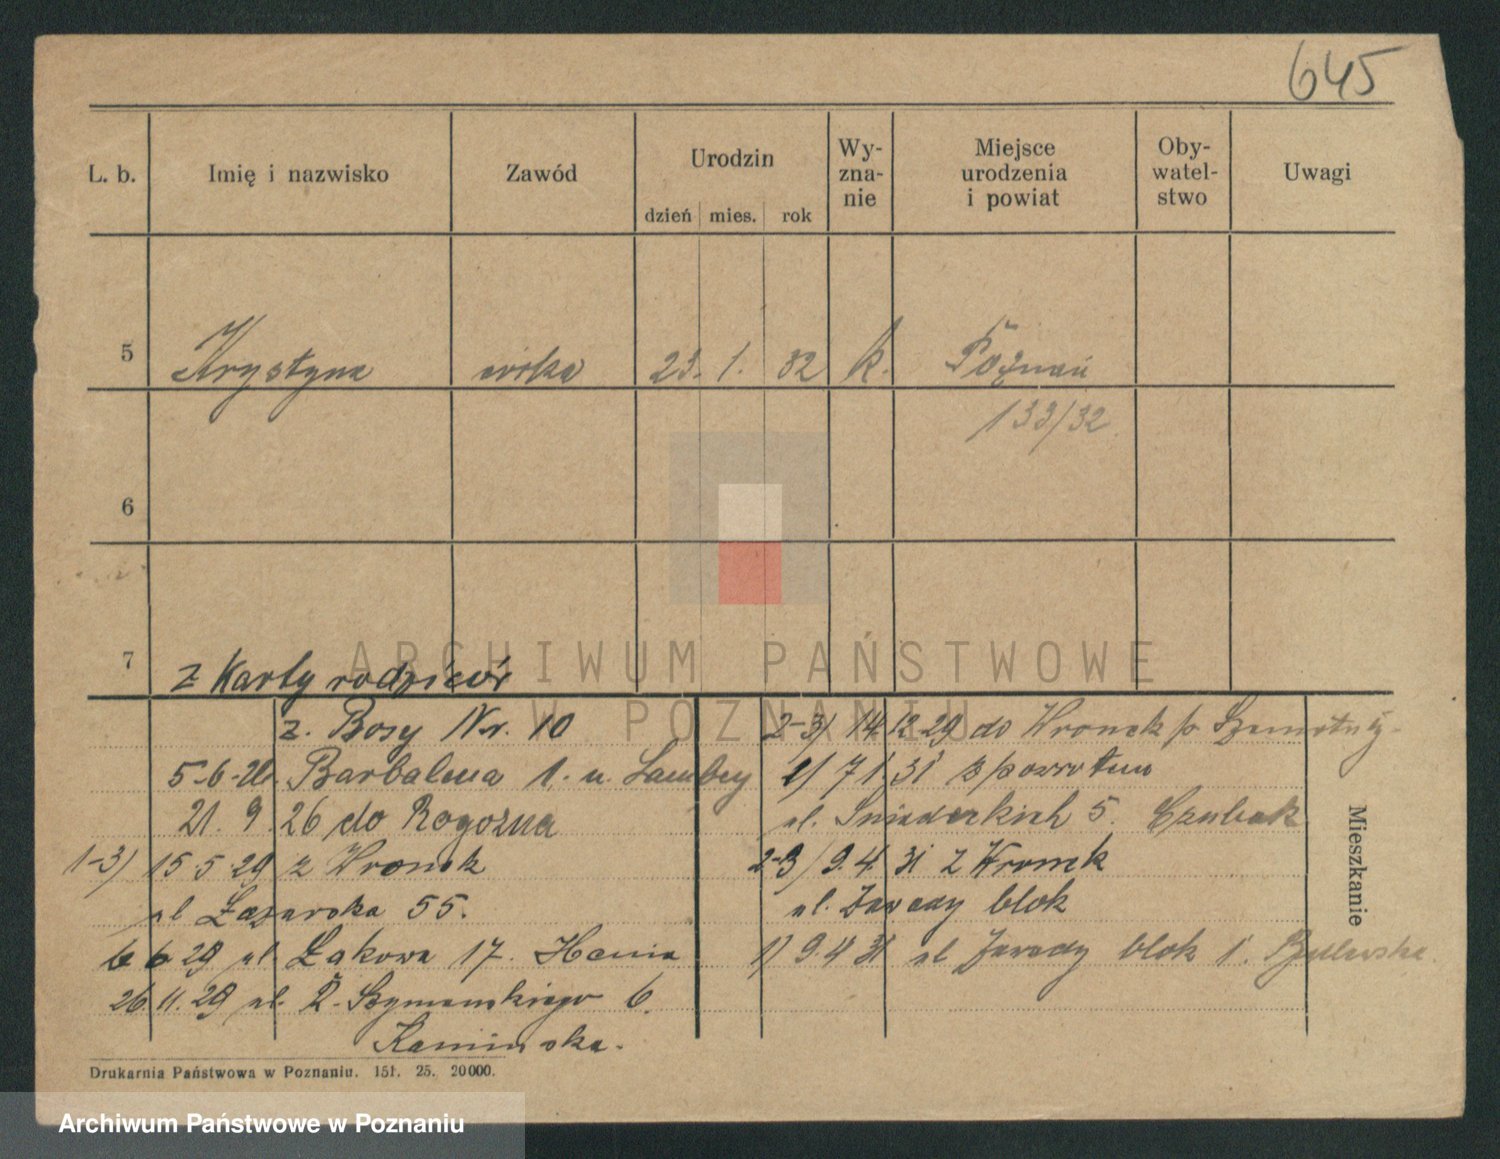 645
L. b. Imię i nazwisko Zawód Urodzin Wy-zna-nie Miejsce urodzenia i powiat Oby-watel-stwo Uwagi
dzień mies. rok
5 Krystyna córka 23. 1. 32 k. Poznań
133/32
6
7 z Karty rodziców
z. Bosy Nr. 10
5-6-26 Barbalina 1. u.
21. 9. 26 do Rogoźna
1-3) 15 5 29 z Wronek
ul Łazarska 55.
6 6 29 ul Łąkowa 17. Hania
26 11. 29 ul. R. Szymańskiego 6.
Kamińska.
2-3) 14 12 29 do Wronek p.
1) 7 1 31 z powrotem
ul. Śniadeckich 5.
2-3) 9. 4. 31 z Wronek
ul. Zawady blok
1) 9. 4 31 ul Zawady blok 1.
Mieszkanie
Drukarnia Państwowa w Poznaniu. 151. 25. 20000.
ARCHIWUM PAŃSTWOWE
W POZNANIU
Archiwum Państwowe w Poznaniu